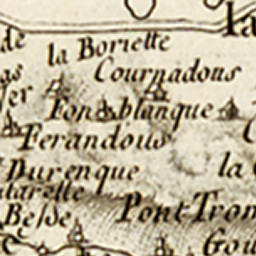 la
de
la Boriette
as
Cournadous
er
Fonblanque
Ferandous
Durenque
la
Besse
Pont Trom
Gou